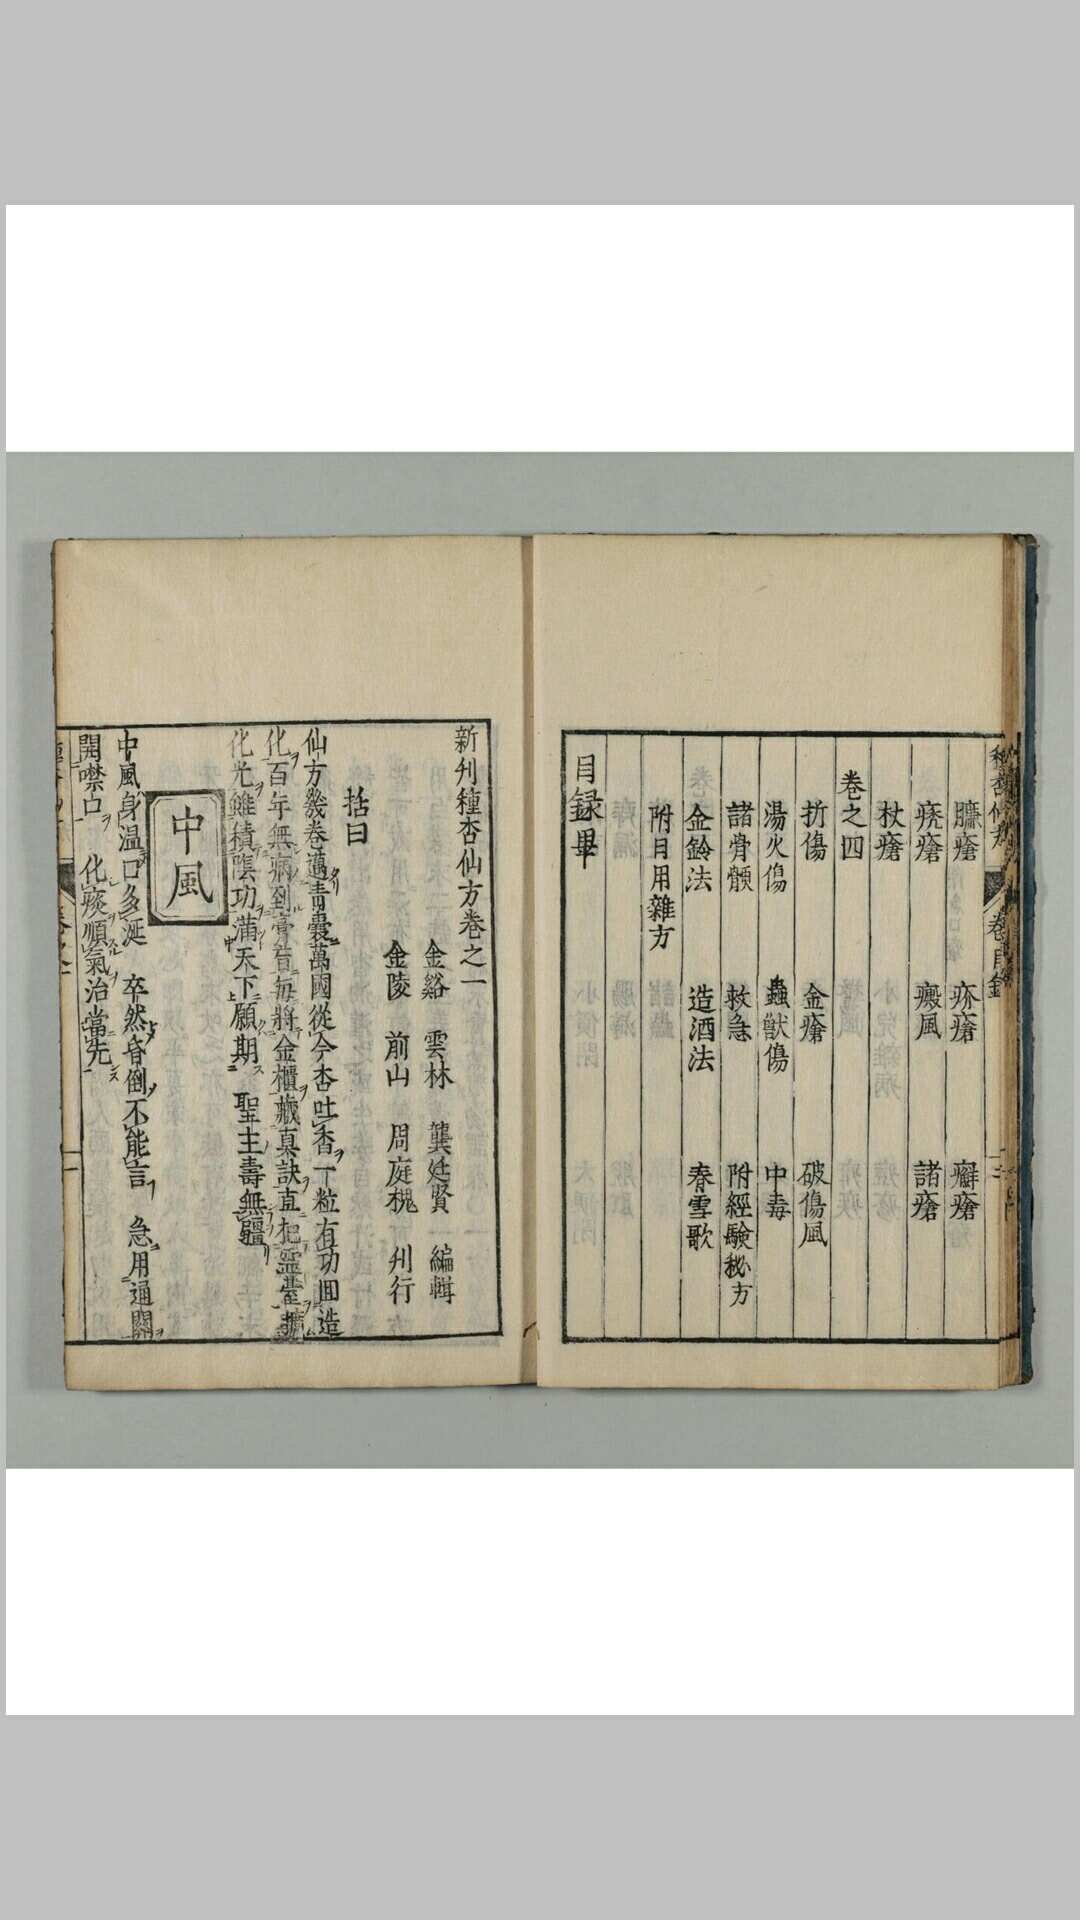 臁瘡 疥瘡 癬瘡
疣瘡 癜風 諸瘡
杖瘡
卷之四
折傷 金瘡 破傷風
湯火傷 蟲獸傷 中毒
諸骨颾 救急 附經驗秘方
金鈴法 造酒法 春雪歌
附日用雜方
目録畢
新刋種杏仙方卷之一
金谿 雲林 龔廷賢 編輯
金陵 前山 周庭槐 刋行
括曰
仙方幾卷邁青囊萬國從今杏吐香一粒有功回造
化百年無病到膏肓每將金櫃藏真訣直把靈臺擴
化光雖積陰功蒲天下願期 聖主壽無疆
中風
中風身温口多涎 卒然昏倒不能言 急用通關
開噤口 化痰順氣治當先